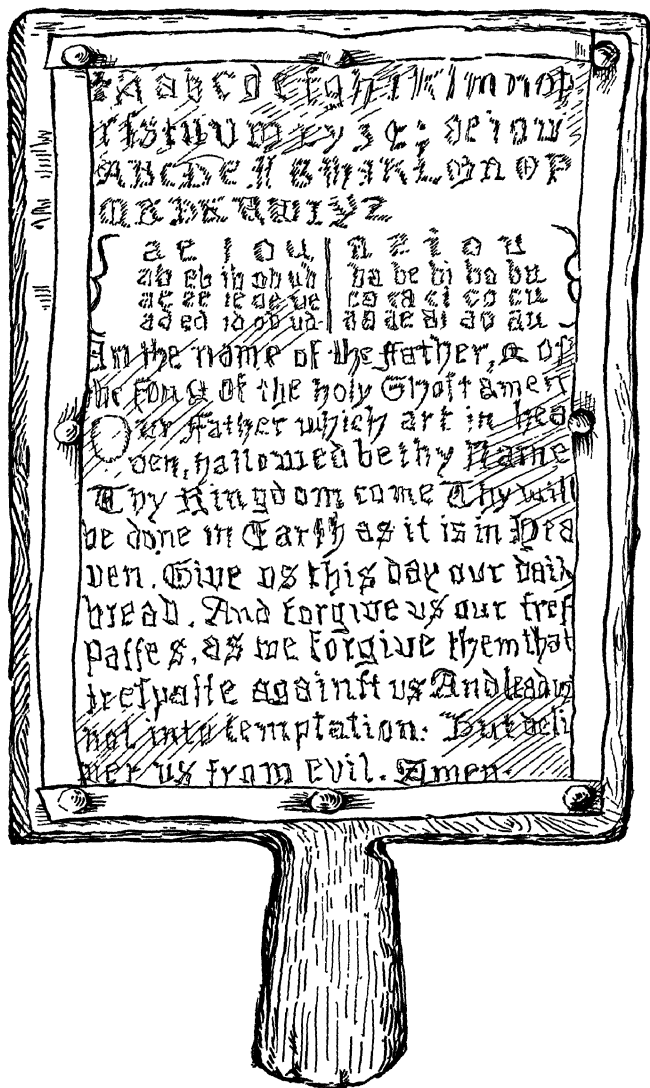 A a b c d e f g h i k l m n o p
r ſ s t u v w x y z & : a e i o u
A B C D E F G H I K L M N O P
a e i o u a e i o u
ab eb ib ob ub ba be bi bo bu
ac ec ic oc uc ca ce ci co cu
ad ed id od ud da de di do du
In the name of the Father, & of
the Son & of the holy Ghoſt amen
Our Father which art in hea
ven, hallowed be thy Name
Thy Kingdom come Thy will
be done in Earth as it is in Hea
ven. Give us this day our daily
bread. And forgive us our treſ
paſſes, as we forgive them that
treſpaſſe againſt us And lead us
not into temptation: But deli
ver us from evil. Amen.